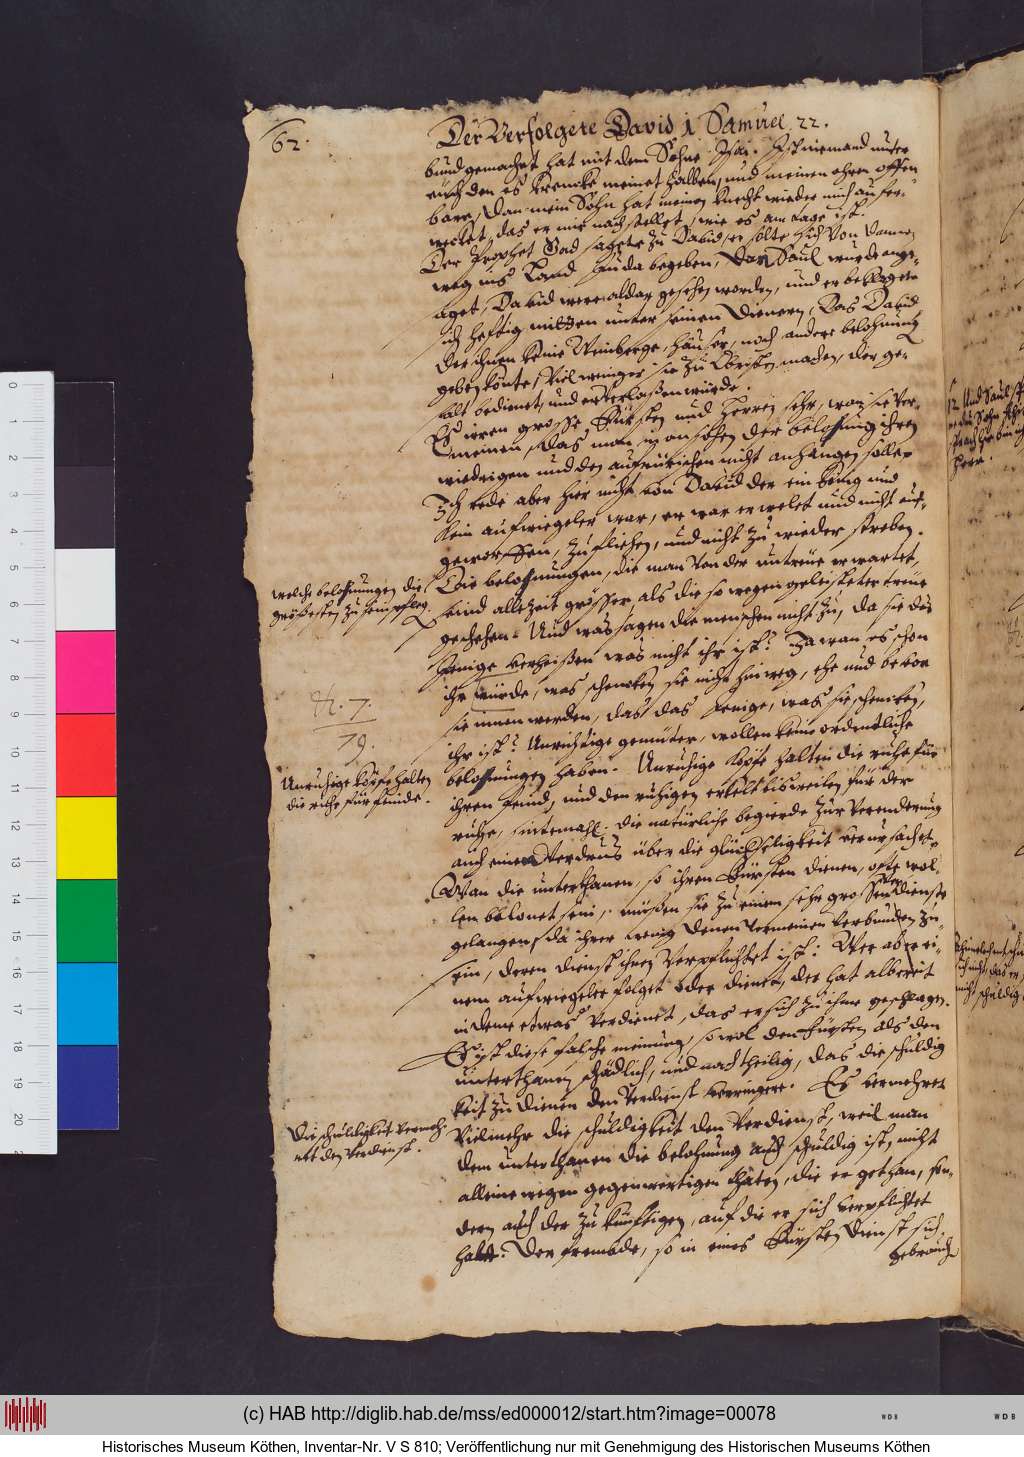 62.
Der Verfolgete David 1 Samuel. 22.
bund gemacht hat mit dem Sohne Isai. Ist niemand unter
euch den es krencke meinet halben, und meinen ohren offen
bare, dan mein Sohn hat meinen knecht wieder mich aufer-
wecket, das er mir nachstellet, wie es am tage ist.
Der Prophet Gad sagete zu David, er solte sich von dannen
weg ins Land Juda begeben, dan Saul wurde ange-
saget, David were aldar gesehen worden, und er beklagete
sich heftig mitten unter seinen Dienern, Das David
der ihnen keine Weinberge, häuser, noch andere belohnung
geben könte, viel weniger sie zu Obristen machen, der ge-
stalt bedienet, und er verlaßen würde.
Es irren grosse Fürsten und Herren sehr, wan sie ver-
meinen, das man in ansehen der belohnung ihren
wiedrigen und den aufrürischen nicht anhangen solle.
Ich rede aber hier nicht von David der ein könig und
kein aufwiegeler war, er war erwelet und nicht auf-
geworffen, zu fliehen, und nicht zu wieder streben.
Die belohnungen, die man von der untreue erwartet,
seind allezeit grösser, als die so wegen geleisteter treue
geschehen. Und was sagen die menschen nicht zu, da sie das
jenige verheißen was nicht ihr ist? Ja wan es schon
ihr würde, was schencken sie nicht hinweg, ehe und bevor
sie innen werden, das das jenige, was sie schencken,
ihr ist? Unrichtige gemüter, wollen keine ordentliche
belohnungen haben. Unruhige köpfe halten die ruhe für
ihren feind, und den ruhigen ekelt bisweilen für der
ruhe, sintemahl die natürliche begierde zur verenderung
auch einen verdrus über die glückseligkeit verursachet.
Wan die unterthanen, so ihren Fürsten dienen, ofte wol-
len belonet sein, müßen sie zu einem sehr grossen verdienste
gelangen, da ihrer wenig denen vermeinen verbunden zu
sein, deren dienst ihnen verpflichtet ist: Wer aber ei-
nem aufwiegeler folget oder dienet, der hat albereit
in deme etwas verdienet, das er sich zu ihme geschlagen.
Es ist diese falsche meinung, so wol den Fürsten als den
unterthanen schädlich, und nachtheilig, das die schuldig
keit zu dienen den verdienst verringere. Es vermehret
vielmehr die schuldigkeit den verdienst, weil man
dem unterthanen die belohnung auch schuldig ist, nicht
alleine wegen gegenwertigen thaten, die er gethan, son-
dern auch der zu künftigen, auf die er sich verpflichtet
habe. Der frembde, so in eines Fürsten dienst sich
gebrauch
welche belohnungen die
größesten zu sein pfleg.
H. 7.
79.
Unruhige köpfe halten
die ruhe für feinde.
Die schuldigkeit vermeh-
ret den verdienst.
12 Und Saul sp
Herr.
nicht schuldig
(c) HAB http://diglib.hab.de/mss/ed000012/start.htm?image=00078
Historisches Museum Köthen, Inventar-Nr. V S 810; Veröffentlichung nur mit Genehmigung des Historischen Museums Köthen
0 1 2 3 4 5 6 7 8 9 10 11 12 13 14 15 16 17 18 19 20
WDB
WDB